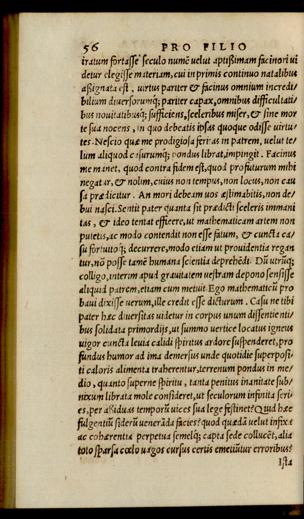 56 PRO FILIO
iratum fortasse seculo numē uelut aptissimam facinori ui
detur elegisse materiam, cui in primis continuo natalibus
assignata est, uirtus pariter & facinus omnium incredi/
bilium diuersorumq; pariter capax, omnibus difficultati/
bus nouitatibusq; sufficiens, sceleribus miser, & sine mor
te sua nocens, in quo debeatis ipsas quoque odisse uirtu/
tes. Nescio quæ me prodigiosa feritas in patrem, uelut te/
lum aliquod casurumq; pondus librat, impingit. Facinus
me manet, quod contra fidem est, quod profuturum mihi
negatur, & nolim, cuius non tempus, non locus, non cau
sa prædicitur. An mori debeam uos æstimabitis, non de/
bui nasci. Sentit pater quanta sit prædicti sceleris immani
tas, & ideo tentat efficere, ut mathematicam artem non
putetis, ac modo contendit non esse fatum, & cuncta ca/
su fortuitoq; decurrere, modo etiam ut prouidentia regan
tur, nō posse tamē humana scientia deprehēdi. Dū utrūq;
colligo, interim apud grauitatem uestram depono sensisse
aliquid patrem, etiam cum metuit. Ego mathematicū pro
baui dixisse uerum, ille credit esse dicturum. Casu ne tibi
pater hæc diuersitas uidetur in corpus unum dissentienti/
bus solidata primordijs, ut summo uertice locatus igneus
uigor cuncta leuia calidi spiritus ardore suspenderet, pro
fundus humor ad ima demersus unde quotidie superposi/
ti caloris alimenta traherentur, terrenum pondus in me/
dio, quanto superne spiritu, tanta penitus inanitate sub/
nixum librata mole consideret, ut seculorum infinita seri/
es, per assiduas temporū uices sua lege festinet? Quid hæc
fulgentiū siderū ueneranda facies? quod quædā uelut infixa
ac cohærentia perpetua semelq; capta sede collucēt, alia
toto sparsa cœlo uagos cursus certis emetiūtur erroribus?
Ista